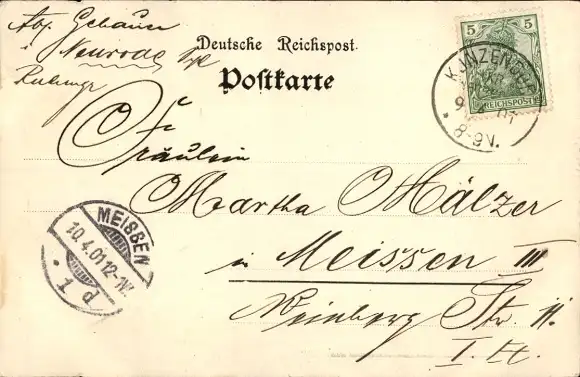 Abs. Gebauer
Neurode
Deutsche Reichspost.
Postkarte
5 5
REICHSPOST
KUNZENDORF
8-9V.
Fräulein
Martha Mälzer
in Meissen III
MEISSEN
10.4.01.12-1N.
Weinberg Str. 11.
I. Et.